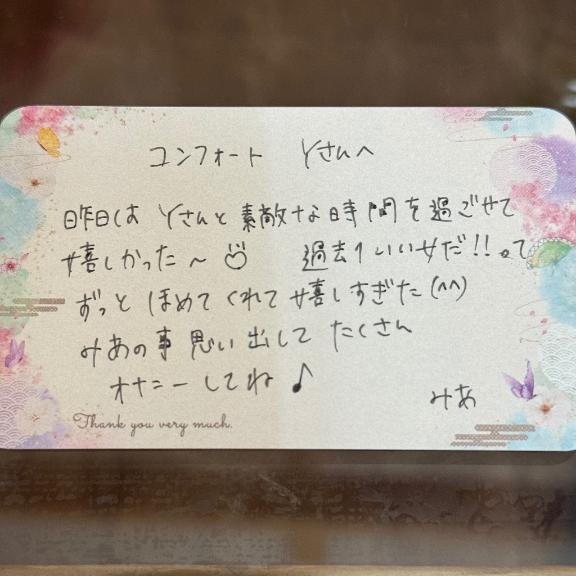 コンフォート Yさんへ
昨日は Yさんと素敵な時間を過ごせて
嬉しかった～☺ 過去1いい女だ!!って
ずっと ほめてくれて嬉しすぎた(^^)
みあの事 思い出して たくさん
オナニーしてね♪
みあ
Thank you very much.